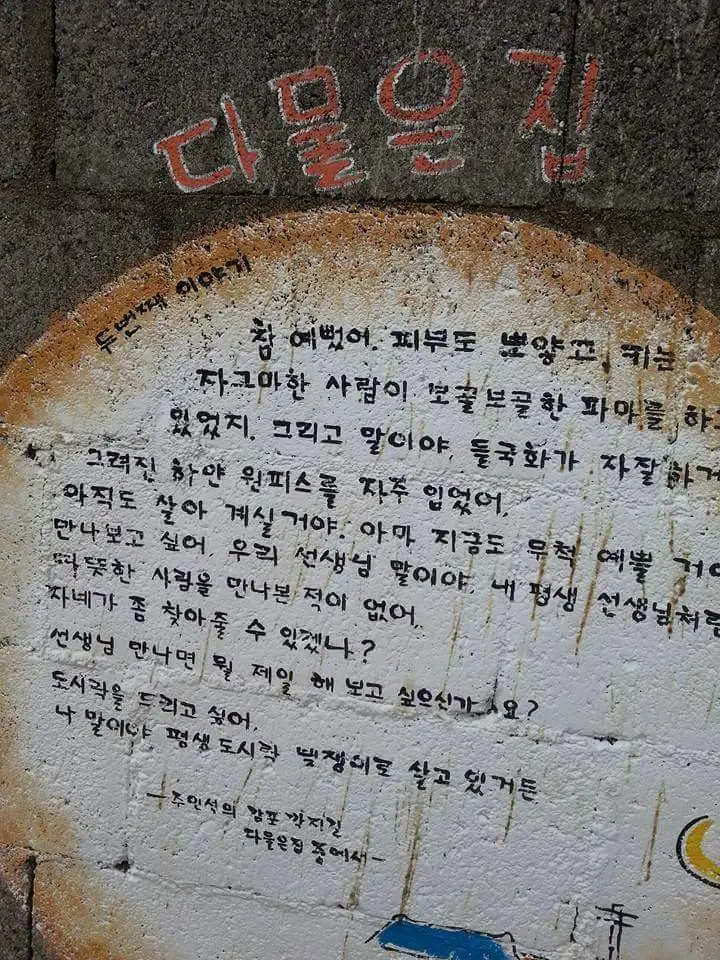 다물은집
두번째 이야기
참 예뻤어. 피부도 뽀얗고, 키는
자그마한 사람이 뽀골보골한 파마를 하고
있었지. 그리고 말이야, 들국화가 자잘하게
그려진 하얀 원피스를 자주 입었어.
아직도 살아 계실거야. 아마 지금도 무척 예쁠 거야
만나보고 싶어, 우리 선생님 말이야. 내 평생 선생님처럼
따뜻한 사람을 만나본 적이 없어.
자네가 좀 찾아줄 수 있겠나?
선생님 만나면 뭘 제일 해 보고 싶으신가요?
도시락을 드리고 싶어.
나 말이야 평생 도시락 빚쟁이로 살고 있거든
-주인석의 감포 깍지길
다물은집 중에서-